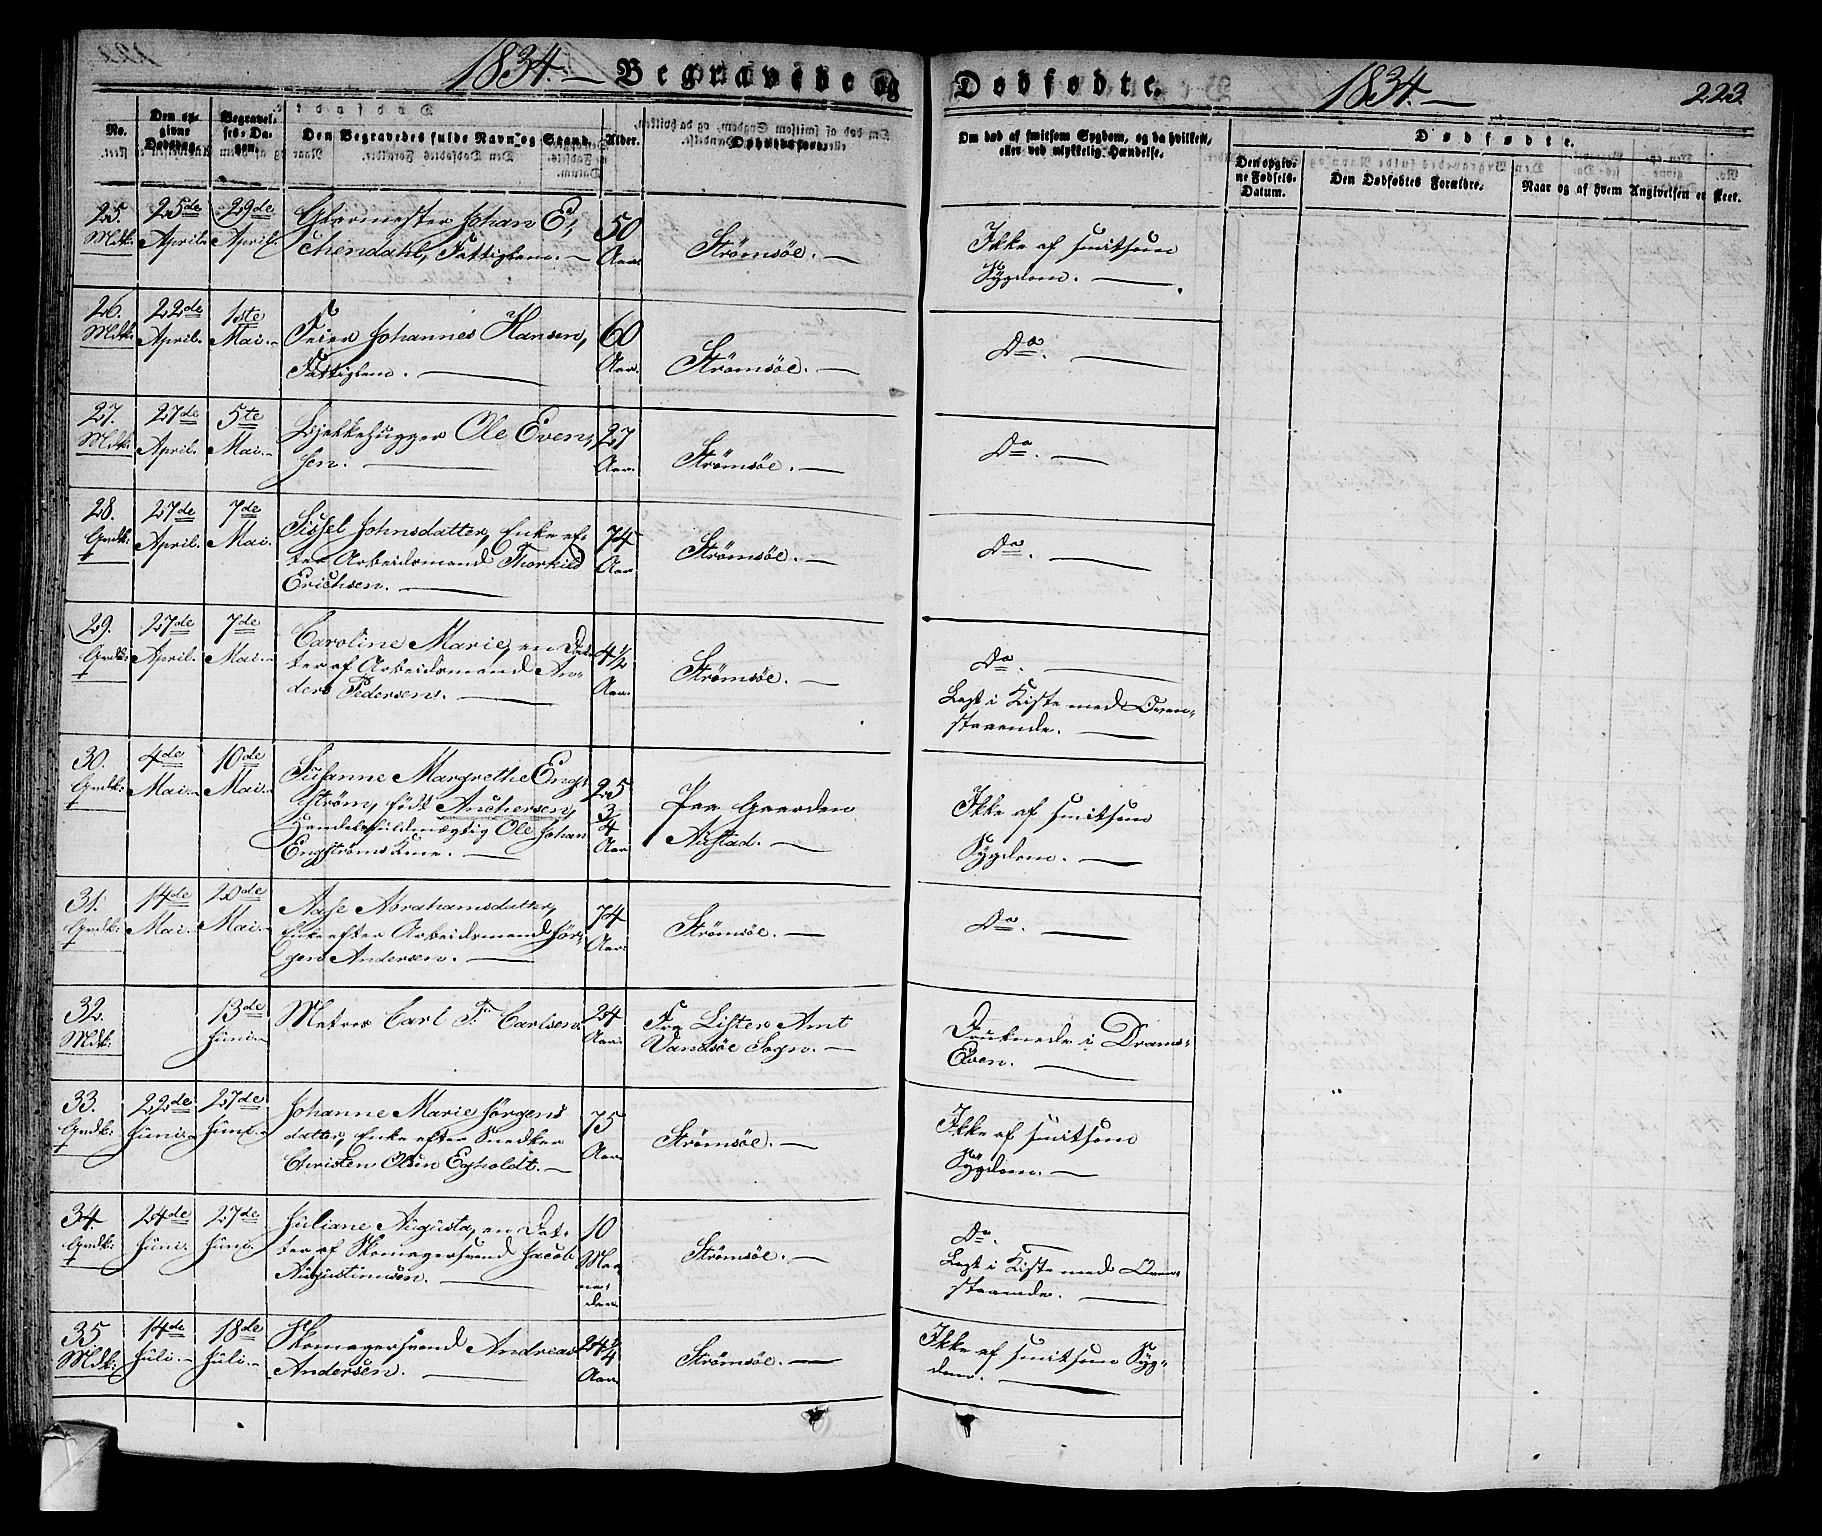 1834. — Begravede og Dødfødte. 1834. — 223.
No.
Den opgivne Dødsdag
Begravelses-Dagen
Den Begravedes fulde Navn og Stand.
Alder.
Opholdssted.
Om død af smitsom Sygdom, og da hvilken, eller ved ulykkelig Hændelse.
Dødfødte.
Den opgivne Fødsels-Datum.
Den Dødfødtes Forældre.
Naar og af hvem Angivelsen er skeet.
25. Mdk: 25de April. 29de April. Glarmester Johan Ei-
chendahl, Fattiglem. — 50 Aar. Strømsøe. —
Ikke af smitsom
Sygdom. —
26. Mdk: 22de April. 1ste Mai. — Feier Johannes Hansen,
Fattiglem. — 60 Aar. Strømsøe. —
Do. —
27. Mdk: 27de April. 5te Mai. — Bjelkehugger Ole Even-
sen. — 27 Aar. Strømsøe. —
Do. —
28. Qvdk: 27de April. 7de Mai. Sissel Johnsdatter, Enke ef-
ter Arbeidsmand Thorkild
Erichsen. — 74 Aar. Strømsøe. —
Do. —
29. Qvdk: 27de April. 7de Mai. — Caroline Marie, en Dat-
ter af Arbeidsmand An-
ders Pedersen. — 4½ Aar. Strømsøe. —
Do. —
Lagt i Kiste med Oven-
staaende. —
30. Qvdk: 4de Mai. — 10de Mai. — Susanne Margrethe Eng-
strøm, født Anchersen,
Handelsfuldmægtig Ole Johan
Engstrøms Kone. — 25 3/4 Aar. Paa Gaarden
Austad. —
Ikke af smitsom
Sygdom. —
31. Qvdk: 14de Mai. 20de Mai. — Aase Abrahamsdatter,
Enke efter Arbeidsmand Jør-
gen Andersen. — 74 Aar. Strømsøe. —
Do. —
32. Mdk: 13de Juni. — Matros Carl Fr. Carlsen. 24 Aar. Fra Lister Amt
Vandsøe Sogn. —
Druknede i Drams-
Elven. —
33. Qvdk: 22de Juni. — 27de Juni. — Johanne Marie Jørgens
datter, Enke efter Snedker
Christen Olsen Egholdt. — 75 Aar. Strømsøe. —
Ikke af smitsom
Sygdom. —
34. Qvdk: 24de Juni. 27de Juni. Juliane Augusta, en Dat-
ter af Skomagersvend Jacob
Augustinusen. — 10 Maaneder. Strømsøe. —
Do. —
Lagt i Kiste med Oven-
staaende. —
35 Mdk: 14de Juli. — 18de Juli. — Skomagersvend Andreas
Andersen. — 24 3/4 Aar. Strømsøe. —
Ikke af smitsom Syg-
dom. —